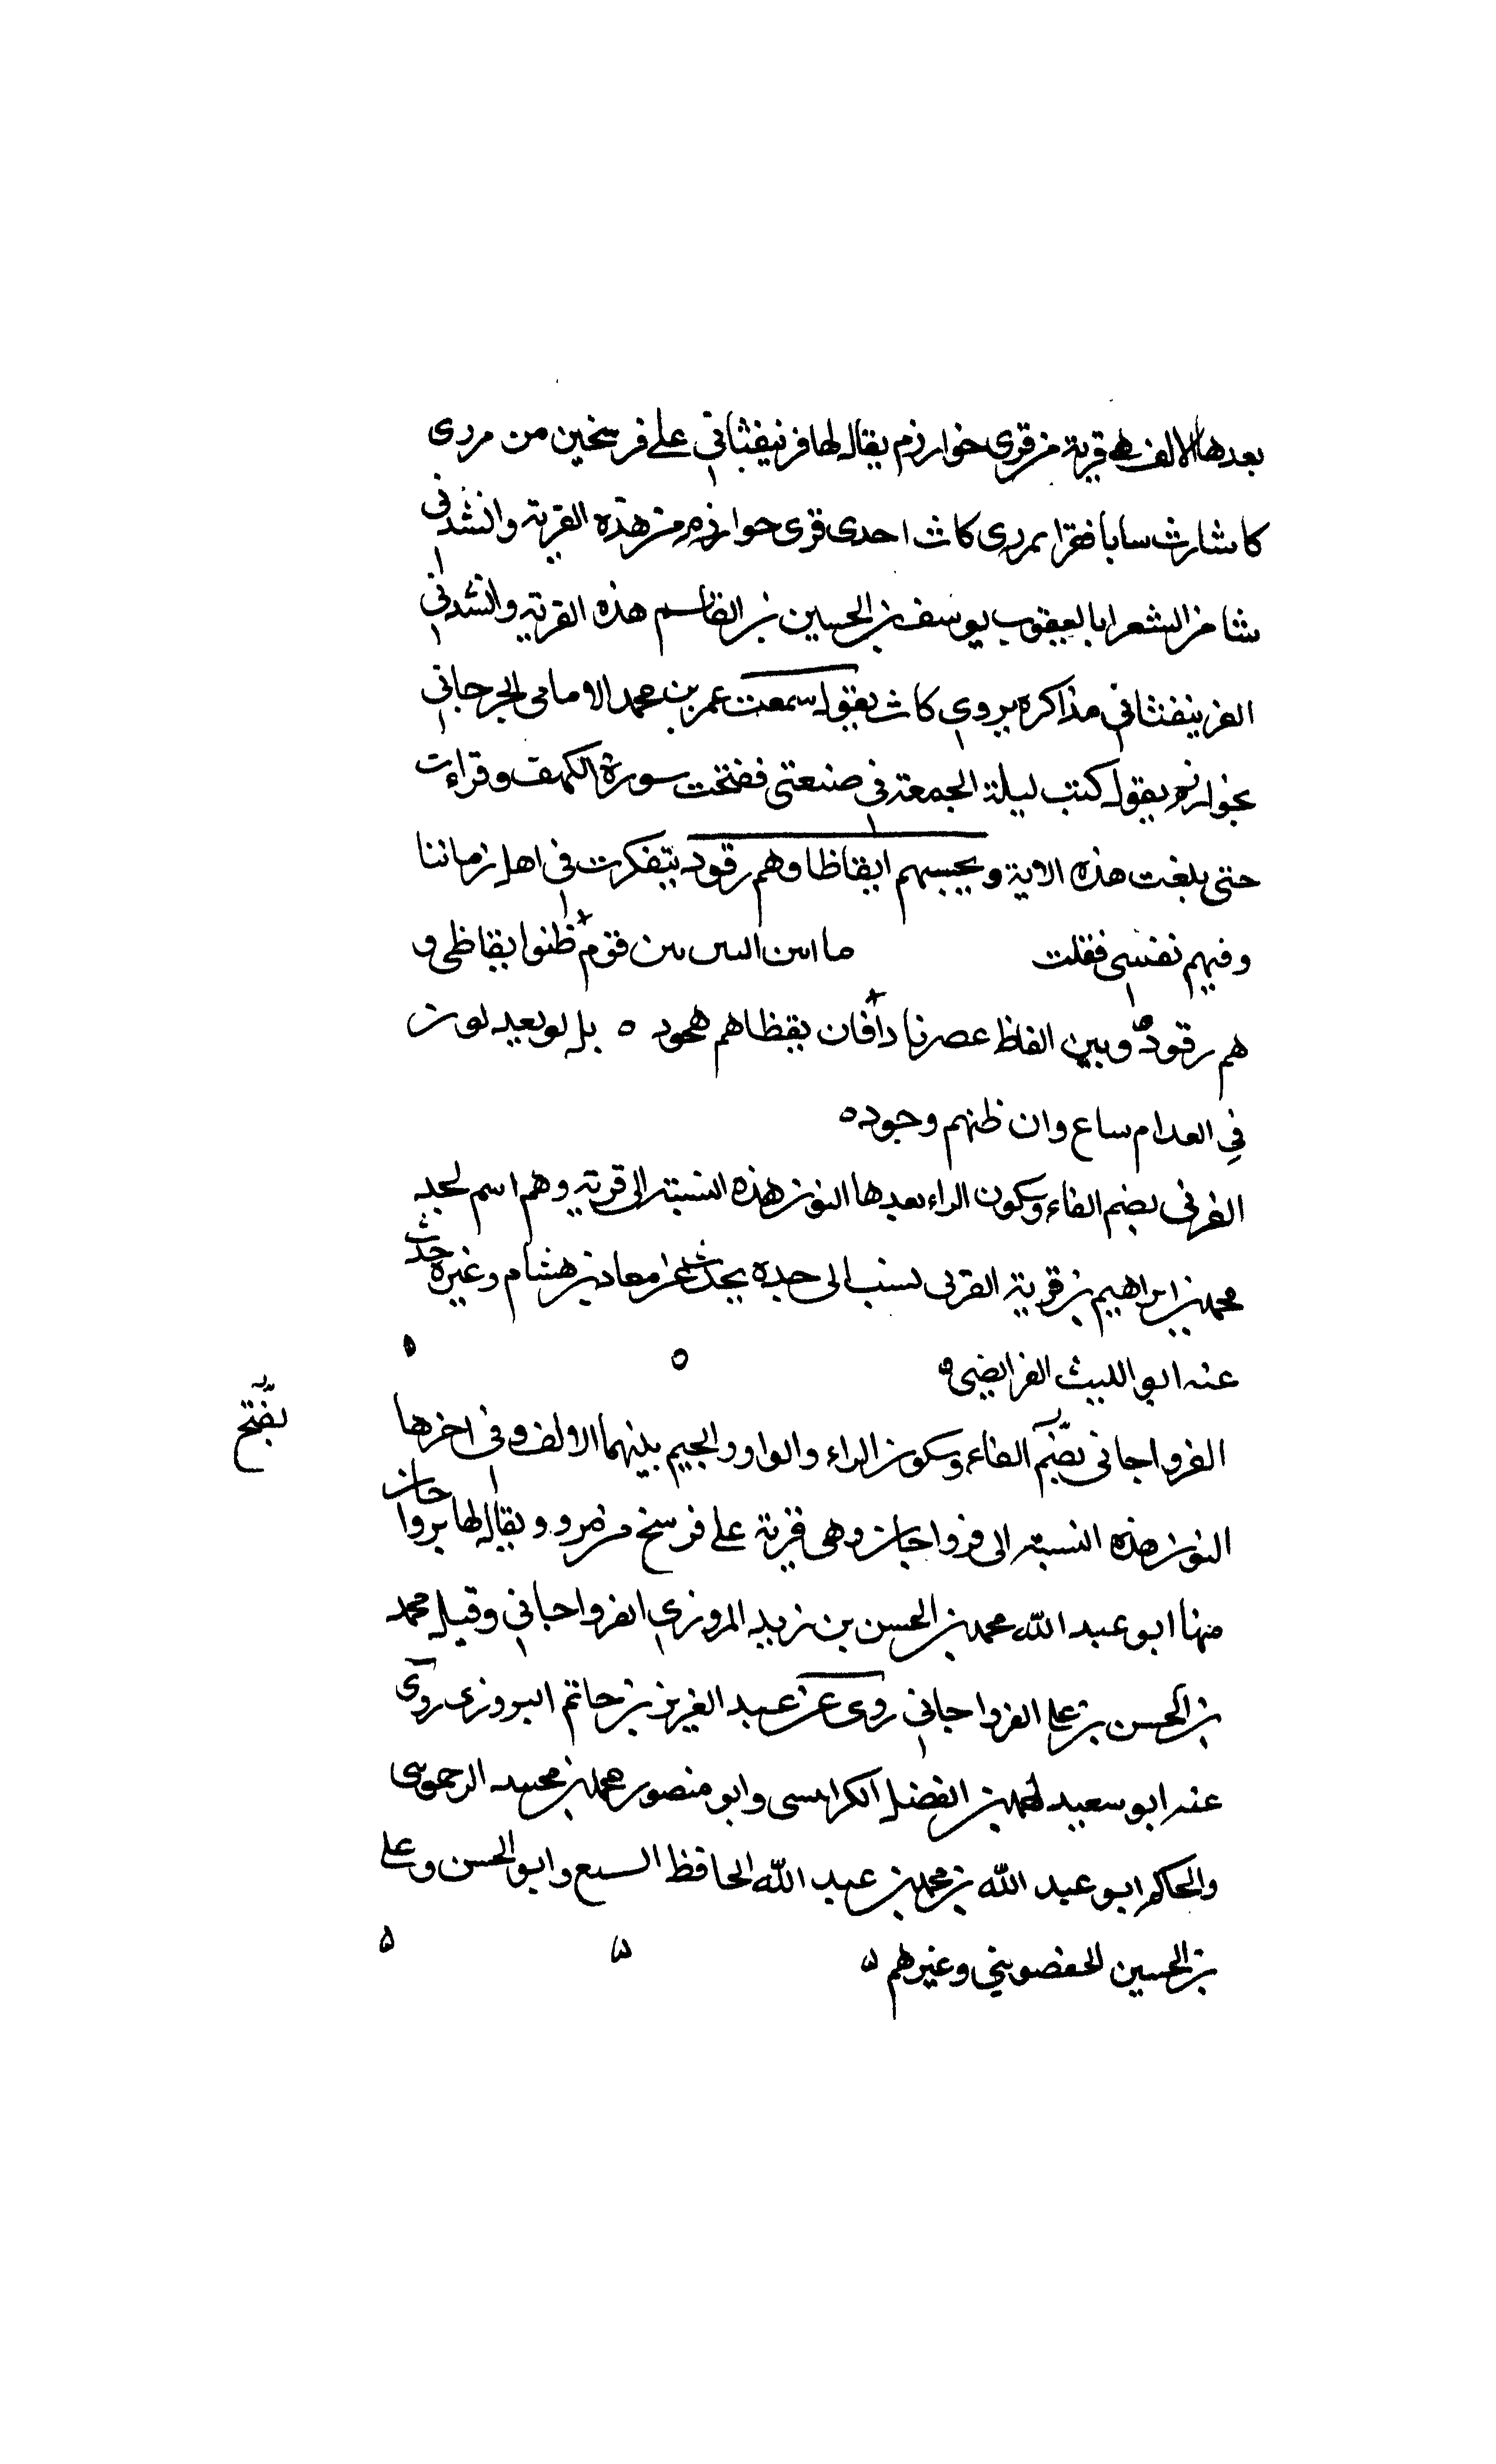 بعدها الالف هى قرية من قرى خوارزم يقال لها فرنيفثانى على فرسخين من مردى
كاث احدى قرى خوارزم من هذه القرية وانشدنى
شا من الشعر ابا ليعقوب يوسف بن الحسين بن القاسم هذه القرية وانشدنى
الفرنيفثانى مذاكره بروى كاث يقول سمعت عمر بن محمد الامامى الجرجانى
بخوارزم يقول كنب ليلة الجمعة فى صنعتى ففتحت سورة الكهف وقراءت
حتى بلغت هذه الاية ويحبسهم ايقاظا وهم رقود بتفكرت فى اهل زماننا
وفيهم نفسى فقلت قوم ظنوا يقاظى و
هم رقود وبين الفاظ عصرنا فان يقظاهم هجود ه بل
في وان ظنهم وجود ه
الفرنى بضم الفاء وسكون الراء بعدها النون هذه النسبة الى قرية وهم اسم لجد
محمد بن ابراهيم بن قرية القرنى لسنب الى جده يحدث عن معاد بن هشام وغيره حدث
عنه ابو الليث الفرايضى ه ه ه
الفرواجانى بضم الفاء وسكون الراء والواو والجيم بينهما الالف وفى اخرها
بفتح
النون هذه النسبة الى فرواجان وهى قرية على فرسخ من مرو ويقال لها برواجان
منها ابو عبد الله محمد بن الحسن بن زيد المروزي الفرواجانى وقيل محمد
بن الحسن بن على الفرواجانى روى عن عبد العزيز بن حاتم البروزى روى
عنه ابو سعيد احمد بن الفضل الكرابسى وابو منصور محمد بن محمد الرحموى
والحاكم ابو عبد الله بن محمد بن عبد الله الحافظ السع وابو الحسن وعلى
بن الحسين الحفصوينى وغيرهم ه ه ه